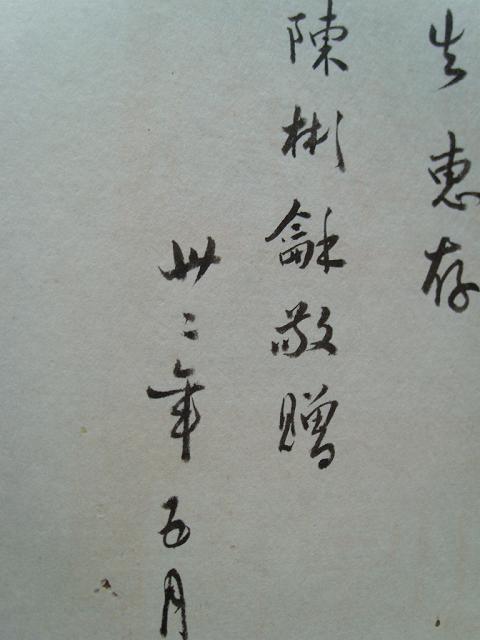 生惠存
陳彬龢敬贈
卅二年五月